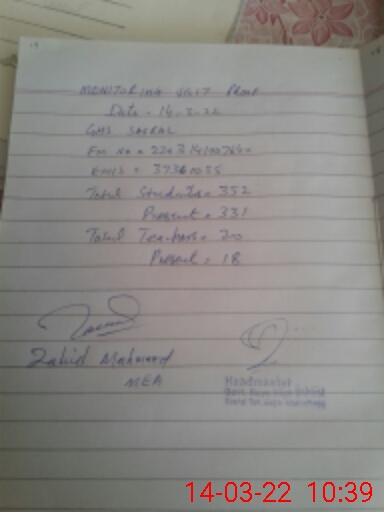 MONITORING VISIT PROOF
Date = 14-3-22
GHS SAGRAL
Em No =
EMIS = 37361035
Total Students = 352
Present = 331
Total Teachers = 20
Present = 18
Zahid Mahmood
MEA
Headmaster
14-03-22 10:39